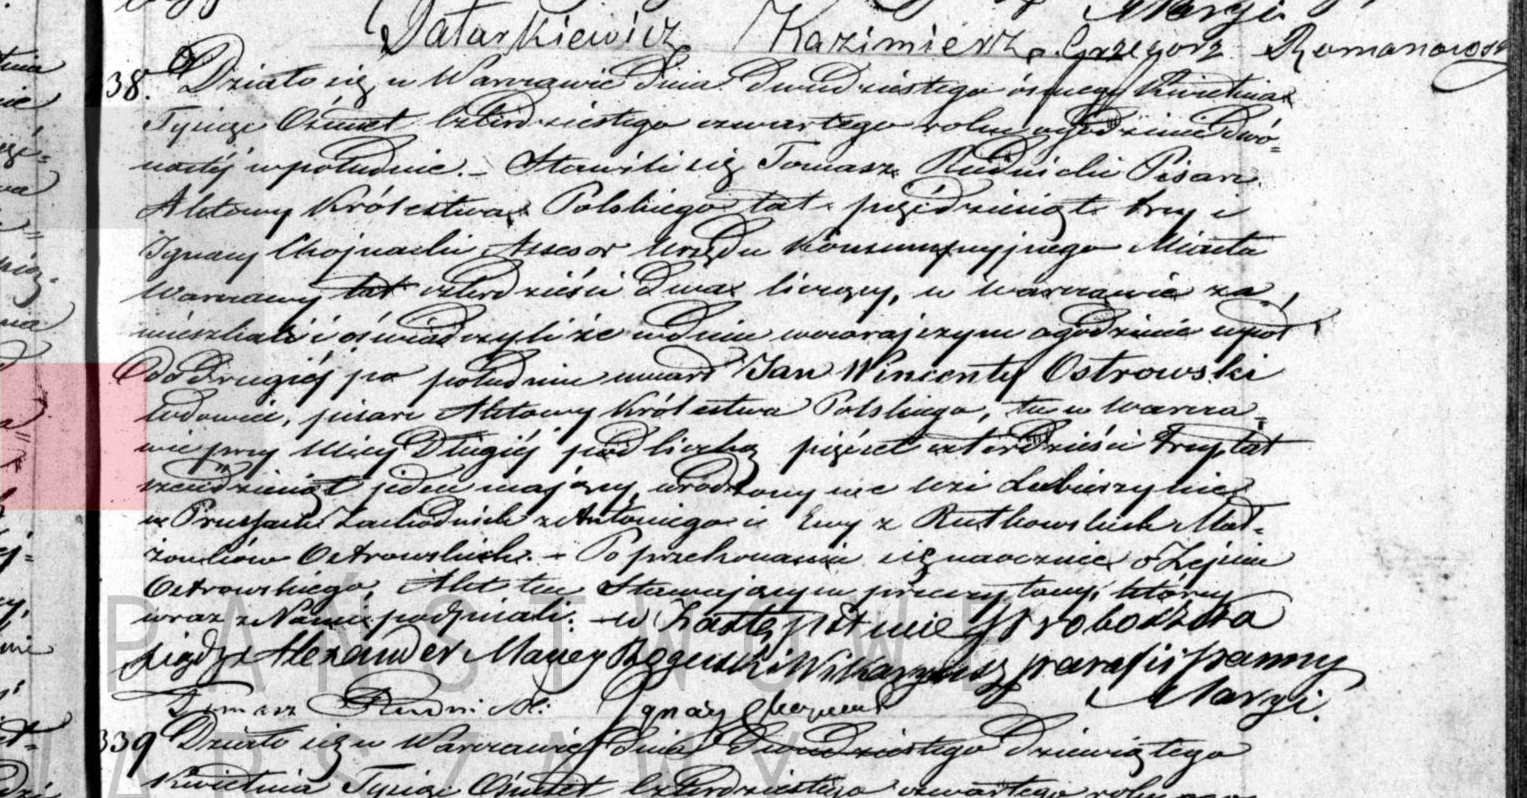 Maryi
Tatarkiewicz Kazimierz Grzegorz Romanowski
338. Działo się w Warszawie dnia dwudziestego ósmego Kwietnia
Tysiąc Ośmset Czterdziestego czwartego roku o godzinie dwó=
nastéj w południe. – Stawili się Tomasz Rudnicki Pisarz
Aktowy Królestwa Polskiego lat pięćdziesiąt trzy i
Ignacy Chojnacki Assesor Urzędu Konsumpcyjnego Miasta
Warszawy lat czterdzieści dwa liczący, w Warszawie za=
mieszkali i oświadczyli że w dniu wczorajszym o godzinie wpół
do drugiéj po południu umarł Jan Wincenty Ostrowski
wdowiec, pisarz Aktowy Królestwa Polskiego, tu w Warsza=
wie przy Ulicy Długiéj pod liczbą pięćset czterdzieści trzy, lat
sześćdziesiąt jeden mający, urodzony we wsi Lubieszynie
w Prussach Zachodnich z Antoniego i Ewy z Rutkowskich Mał=
żonków Ostrowskich. – Po przekonaniu się naocznie o Zejściu
Ostrowskiego, Akt ten Stawającym przeczytany, którzy
wraz z Nami podpisali. – w Zastępstwie Proboszcza
Xiądz Alexander Maciey Boguski Wikaryusz parafii Panny
Maryi.
Tomasz Rudnicki Ignacy Chojnacki
339 Działo się w Warszawie dnia dwudziestego dziewiątego
Kwietnia Tysiąc Ośmset Czterdziestego czwartego roku
PAŃSTWOWE
WARSZAWY